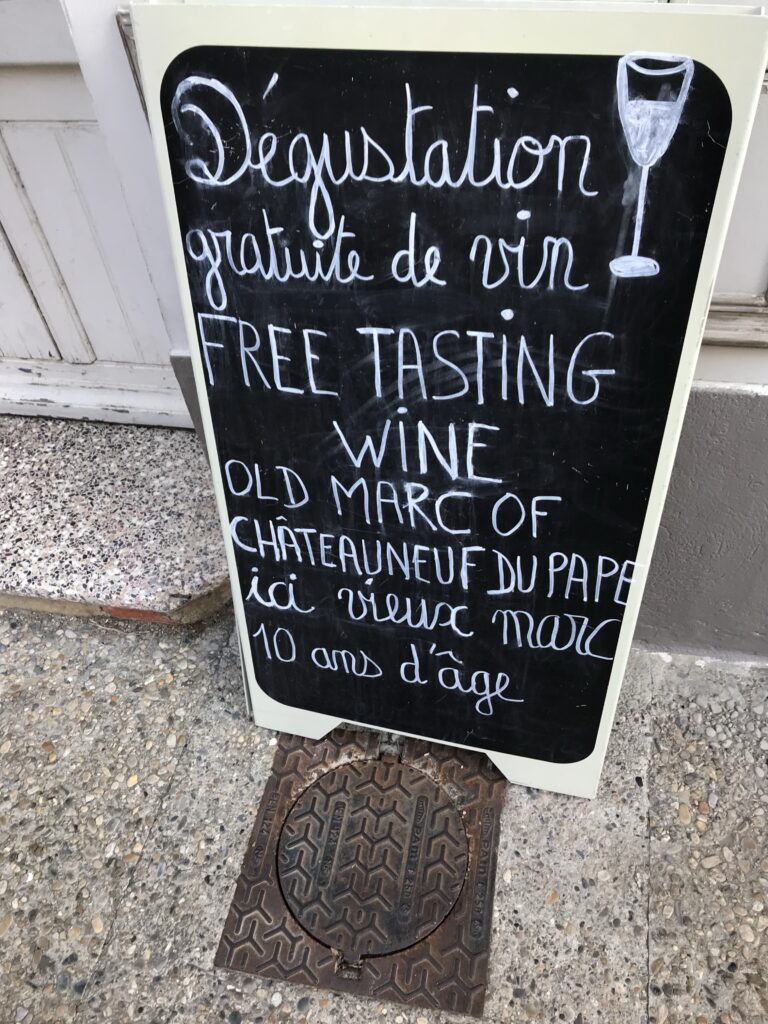 Dégustation
gratuite de vin
FREE TASTING
WINE
OLD MARC OF
CHÂTEAUNEUF DU PAPE
ici vieux marc
10 ans d'âge